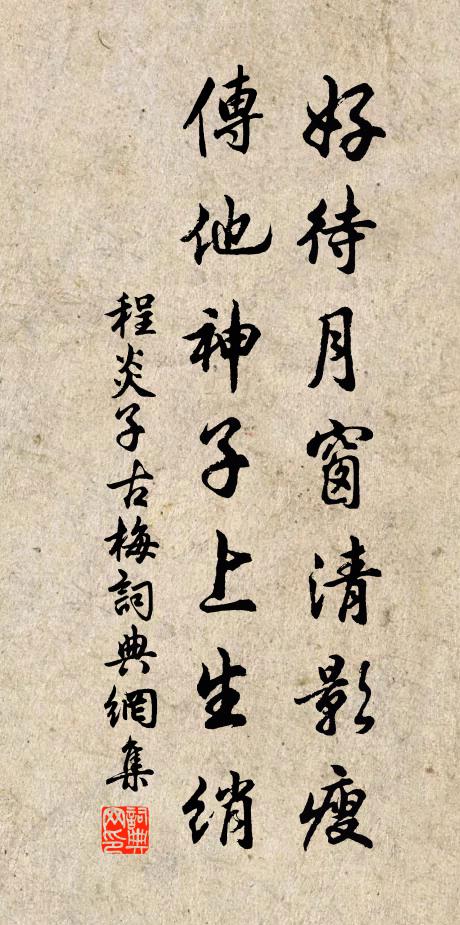 好待月窗清影瘦
傳他神子上生綃
程炎子古梅詞典網集
詞典網印